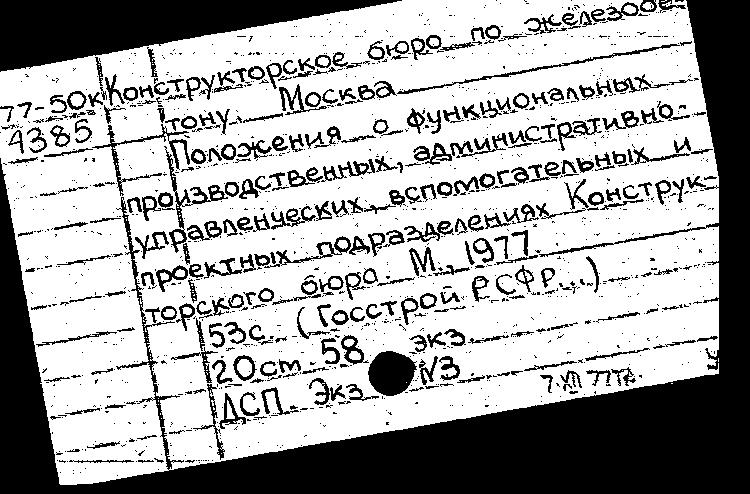 77-50к Конструкторское бюро по железобе-
4385 тону. Москва
Положения о функциональных
производственных, административно-
управленческих, вспомогательных и
проектных подразделениях Конструк-
торского бюро. М., 1977.
53с. (Госстрой РСФР...)
20см. 58 экз.
ДСП. Экз №3
7.XII 77